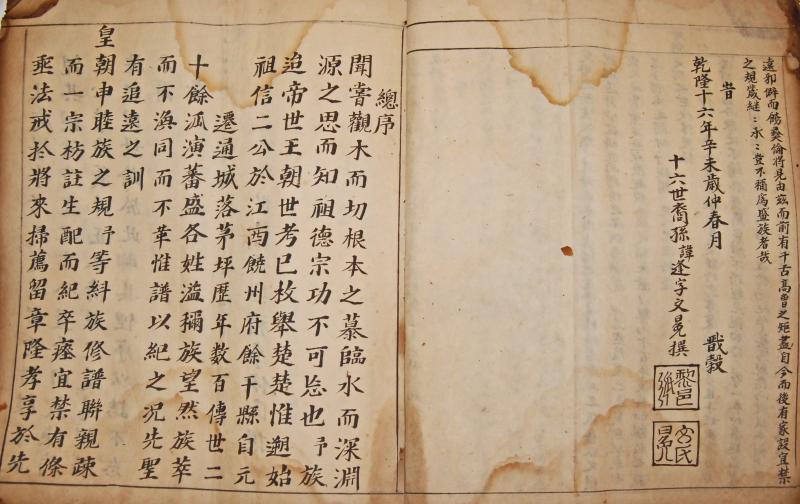 遠邪僻而餙彝倫將見由兹而前有千古高曽之矩蓋自今而後有家設宜禁
之規歲継〻承〻豈不稱爲盛族者哉
昔
乾隆十六年辛未歲仲春月
戢穀
十六世裔孫諱逢字文晃撰
總序
聞嘗觀木而切根本之慕臨水而深淵
源之思而知祖德宗功不可忘也予族
追帝世王朝世考已枚舉楚楚惟遡始
祖信二公於江西饒州府餘干縣自元
遷通城落茅坪歷年數百傳世二
十餘派演蕃盛各姓溢稱族望然族萃
而不渙同而不華惟譜以紀之況先聖
有追遠之訓
皇朝申睦族之規予等糾族修譜聯親疎
而一宗枋註生配而紀卒塟宜禁有條
垂法戒扵將來掃薦留章隆孝享於先